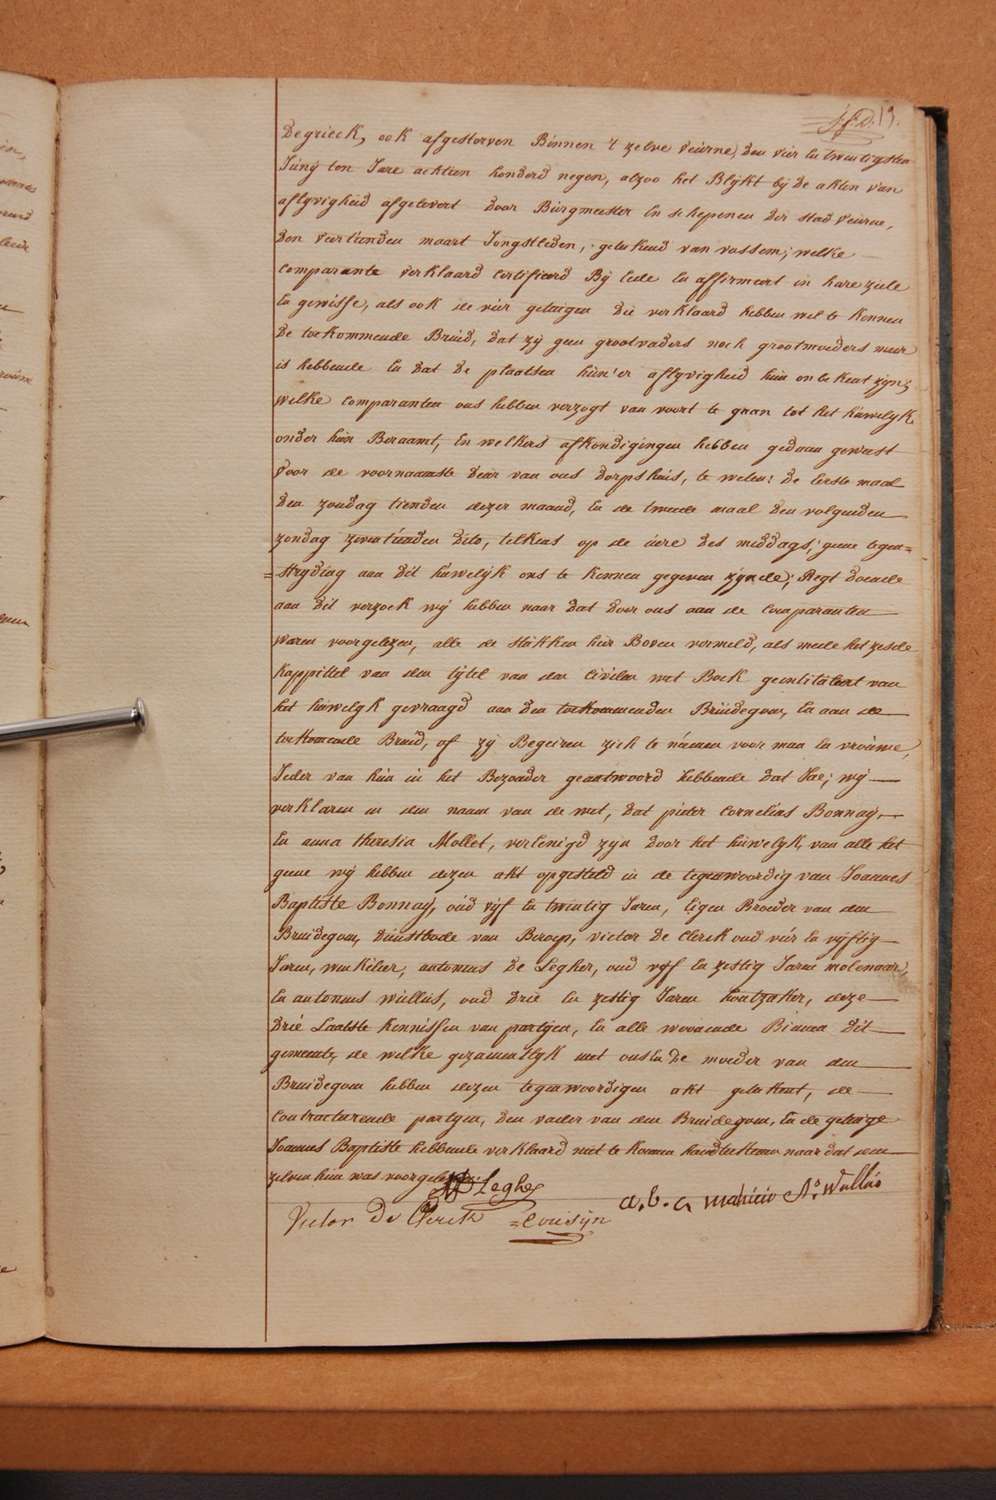 19.
Degrieck, ook afgestorven Binnen 't zelve veurne, den vier en twintigsten
Juny ten Jare achtien honderd negen, alzoo het Blykt by de akten van
aflyvigheid afgelevert door Burgmeester en schepenen der stad veurne,
den veertienden maart Jongstleden, geteekend van vossem; welke
comparante verklaard certifieerd By eede en affirmeert in hare ziele
en gewisse, als ook de vier getuigen die verklaard hebben wel te kennen
De toekommende Bruid, dat zy geen grootvaders noch grootmoeders meer
is hebbende en dat de plaatsen hun'er aflyvigheid hun onbekent zyn;
welke comparanten ons hebben verzogt van voort te gaan tot het huwelyk
onder hun Beraamt, en welkers afkondigingen hebben gedaan geweest
voor de voornaamste deur van ons dorpshuis, te weten: de eerste maal
den zondag tienden dezer maand, en de tweede maal den volgenden
zondag zeventienden dito, telkens op de ure des middags; geene tegen=
=strydiag aan dit huwelyk ons te kennen gegeven zynde; Regt doende
aan dit verzoek wy hebben naar dat door ons aan de comparanten
waren voorgelezen, alle de stukken hier Boven vermeld, als mede het zesde
kappittel van den tytel van den civilen wet Boek geintituleert van
het huwelyk gevraagd aan den toekommenden Bruidegom, en aan de
toekomende Bruid, of zy Begeiren zich te neemen voor man en vrouwe,
Ieder van hun in het Bezonder geantwoord hebbende dat Jae; wy
verklaren in den naam van de wet, dat pieter Cornelius Bonnay,
en anna theresia Mollet, vereenigd zyn door het huwelyk, van alle het
geene wy hebben dezen akt opgesteld in de tegenwoordig van Joannes
Baptiste Bonnay, oud vyf en twintig Jaren, Eigen Broeder van den
Bruidegom, dienstbode van Beroep, victor De Clerck oud vier en vyftig
Jaren, winkelier, antonius De Legher, oud vyf en zestig Jaren molenaar,
en antonius wullus, oud drie en zestig Jaren houtzaker, deze
Drie Laatste kennissen van partyen, en alle woonende Binnen dit
gemeente, de welke gezamentlyk met ons en De moeder van den
Bruidegom hebben dezen tegenwoordigen akt geteekent, de
contracturende partyen, den vader van den Bruidegom, en de getuige
Joannes Baptiste hebbende verklaard niet te konnen handteekenen naar dat den
zelven hun was voorgelezen.
Leghe a. b. c. Ao. Wullus
Victor De Clerck =Cousyn